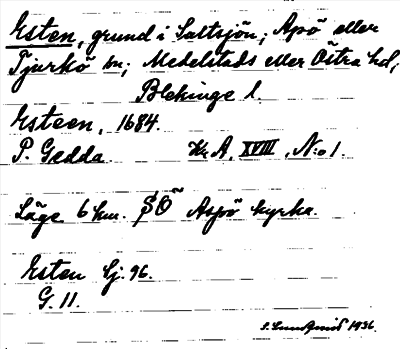 Esten, grund i Saltsjön; Aspö eller
Tjurkö sn; Medelstads eller Östra hd,
Blekinge l.
Esteen, 1684.
P. Gedda. Kr. A. XVIII, No 1.
Läge 6 km. SO Aspö kyrka.
Esten Sj. 96.
G. 11.
1936.